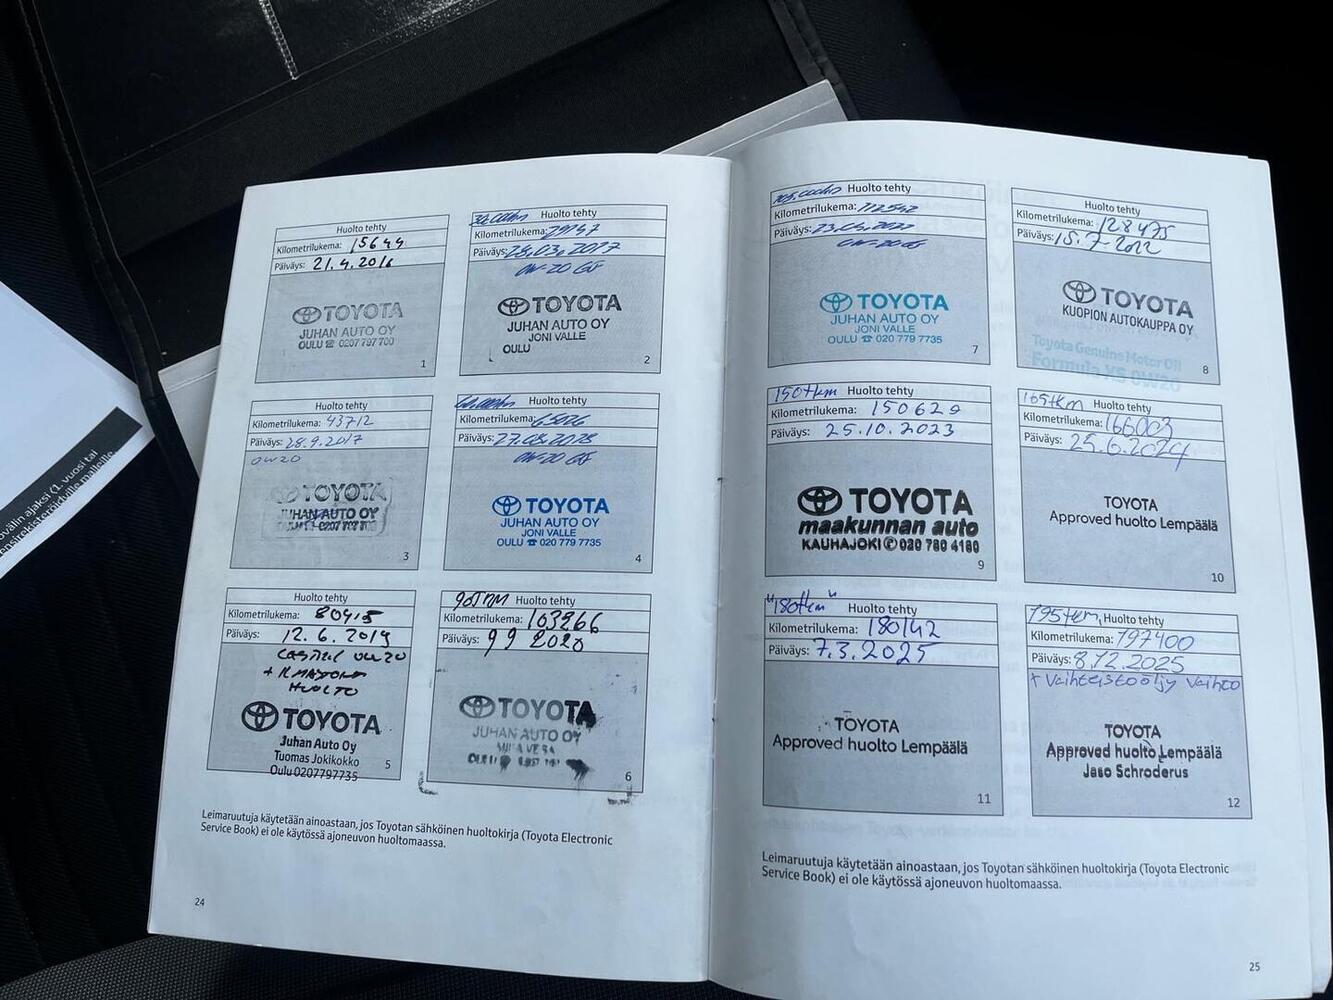 Huolto tehty
Kilometrilukema: 15644
Päiväys: 21.4.2016
TOYOTA
JUHAN AUTO OY
OULU ☎ 0207 797 700
1
30.000km Huolto tehty
Kilometrilukema: 29147
Päiväys: 28.03.2017
0W-20
TOYOTA
JUHAN AUTO OY
JONI VALLE
OULU
2
Huolto tehty
Kilometrilukema: 43712
Päiväys: 28.9.2017
0W20
TOYOTA
JUHAN AUTO OY
3
Huolto tehty
Kilometrilukema: 65026
Päiväys: 27.08.2018
0W-20
TOYOTA
JUHAN AUTO OY
JONI VALLE
OULU ☎ 020 779 7735
4
Huolto tehty
Kilometrilukema: 80415
Päiväys: 12.6.2019
0W20
+ ILMASTOINN
HUOLTO
TOYOTA
Juhan Auto Oy
Tuomas Jokikokko
Oulu 0207797735
5
Huolto tehty
Kilometrilukema: 103266
Päiväys: 9 9 2020
TOYOTA
JUHAN AUTO OY
6
Leimaruutuja käytetään ainoastaan, jos Toyotan sähköinen huoltokirja (Toyota Electronic
Service Book) ei ole käytössä ajoneuvon huoltomaassa.
24
105.000km Huolto tehty
Kilometrilukema: 112542
Päiväys:
0W-20
TOYOTA
JUHAN AUTO OY
JONI VALLE
OULU ☎ 020 779 7735
7
Huolto tehty
Kilometrilukema: 128475
Päiväys: 15.7-2022
TOYOTA
KUOPION AUTOKAUPPA OY
Toyota Genuine Motor Oil
Formula XS 0W20
8
150tkm Huolto tehty
Kilometrilukema: 150629
Päiväys: 25.10.2023
TOYOTA
maakunnan auto
KAUHAJOKI ✆ 020 780 4180
9
165tkm Huolto tehty
Kilometrilukema: 166003
Päiväys: 25.6.2024
TOYOTA
Approved huolto Lempäälä
10
"180tkm" Huolto tehty
Kilometrilukema: 180142
Päiväys: 7.3.2025
TOYOTA
Approved huolto Lempäälä
11
195tkm, Huolto tehty
Kilometrilukema: 197400
Päiväys: 8.12.2025
+ vaihteistoöljy vaihto
TOYOTA
Approved huolto Lempäälä
Jaso Schroderus
12
Leimaruutuja käytetään ainoastaan, jos Toyotan sähköinen huoltokirja (Toyota Electronic
Service Book) ei ole käytössä ajoneuvon huoltomaassa.
25